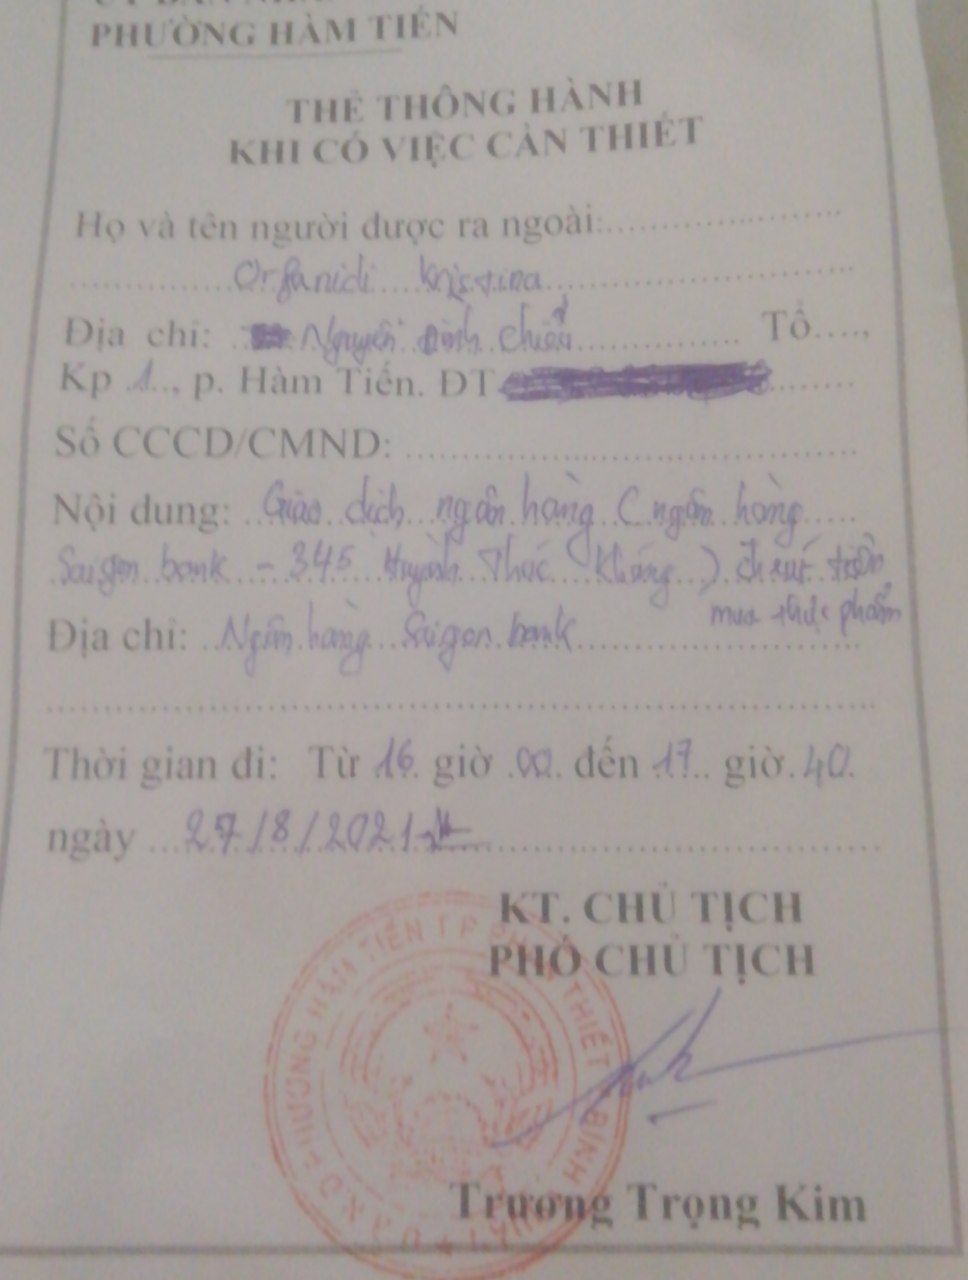 PHƯỜNG HÀM TIẾN
THẺ THÔNG HÀNH
KHI CÓ VIỆC CẦN THIẾT
Họ và tên người được ra ngoài:
Organidi Kristina
Địa chỉ: Nguyễn Đình Chiểu Tổ....,
Kp 1.., p. Hàm Tiến. ĐT
Số CCCD/CMND:
Nội dung: Giao dịch ngân hàng (ngân hàng
Saigon bank - 345 Huỳnh Thúc Kháng)
mua thực phẩm
Địa chỉ: Ngân hàng Saigon bank
Thời gian đi: Từ 16 giờ 00 đến 17 giờ 40
ngày 27/8/2021
KT. CHỦ TỊCH
PHÓ CHỦ TỊCH
U.B.N.D PHƯỜNG HÀM TIẾN T.P PHAN THIẾT
Trương Trọng Kim